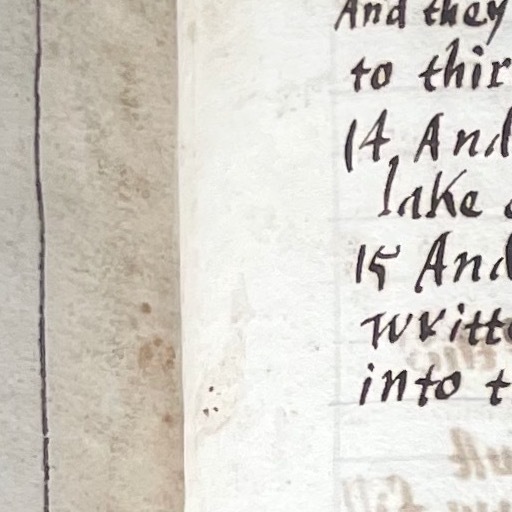 And they
to thir
14 And
lake
15 And
writte
into t